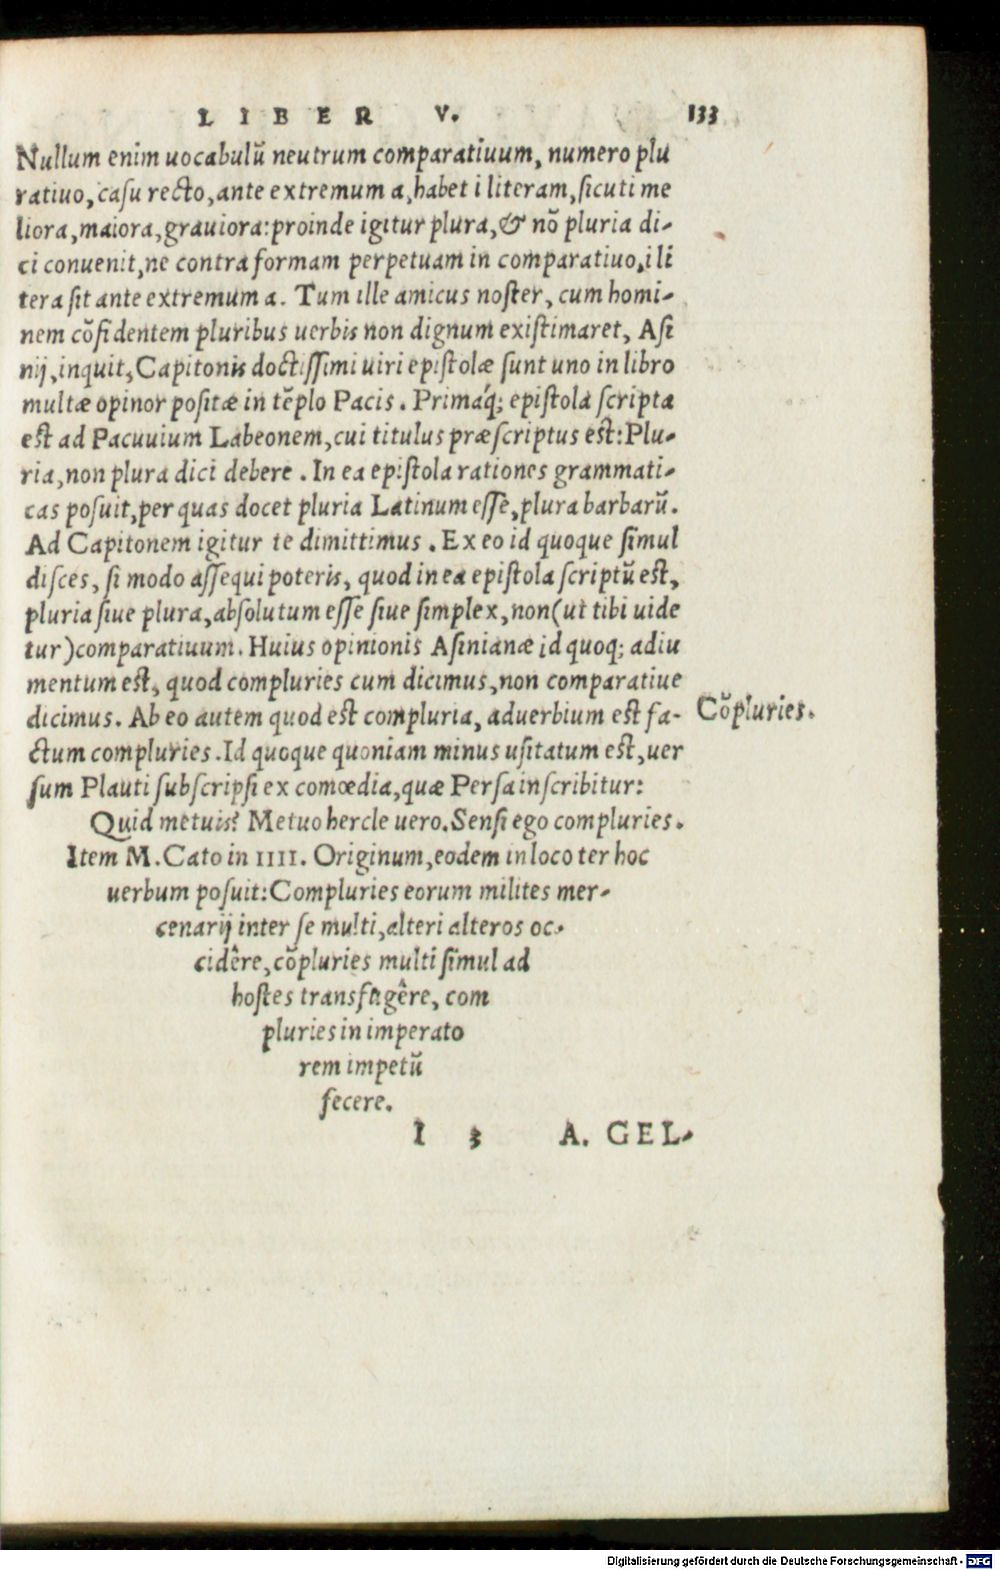 LIBER V. 133
Nullum enim uocabulũ neutrum comparatiuum, numero plu
ratiuo, casu recto, ante extremum a, habet i literam, sicuti me
liora, maiora, grauiora: proinde igitur plura, & nõ pluria di-
ci conuenit, ne contra formam perpetuam in comparatiuo, i li
tera sit ante extremum a. Tum ille amicus noster, cum homi-
nem cõfidentem pluribus uerbis non dignum existimaret, Asi
nij, inquit, Capitonis doctissimi uiri epistolæ sunt uno in libro
multæ opinor positæ in tẽplo Pacis. Primáq; epistola scripta
est ad Pacuuium Labeonem, cui titulus præscriptus est: Plu-
ria, non plura dici debere. In ea epistola rationes grammati-
cas posuit, per quas docet pluria Latinum esse, plura barbarũ.
Ad Capitonem igitur te dimittimus. Ex eo id quoque simul
disces, si modo assequi poteris, quod in ea epistola scriptũ est,
pluria siue plura, absolutum esse siue simplex, non (ut tibi uide
tur) comparatiuum. Huius opinionis Asinianæ id quoq; adiu
mentum est, quod compluries cum dicimus, non comparatiue
dicimus. Ab eo autem quod est compluria, aduerbium est fa-
ctum compluries. Id quoque quoniam minus usitatum est, uer
sum Plauti subscripsi ex comœdia, quæ Persa inscribitur:
Cõpluries.
Quid metuis? Metuo hercle uero. Sensi ego compluries.
Item M. Cato in IIII. Originum, eodem in loco ter hoc
uerbum posuit: Compluries eorum milites mer-
cenarij inter se multi, alteri alteros oc-
cidêre, cõpluries multi simul ad
hostes transfugêre, com
pluries in imperato
rem impetũ
fecere.
I 3 A. GEL-
Digitalisierung gefördert durch die Deutsche Forschungsgemeinschaft - DFG